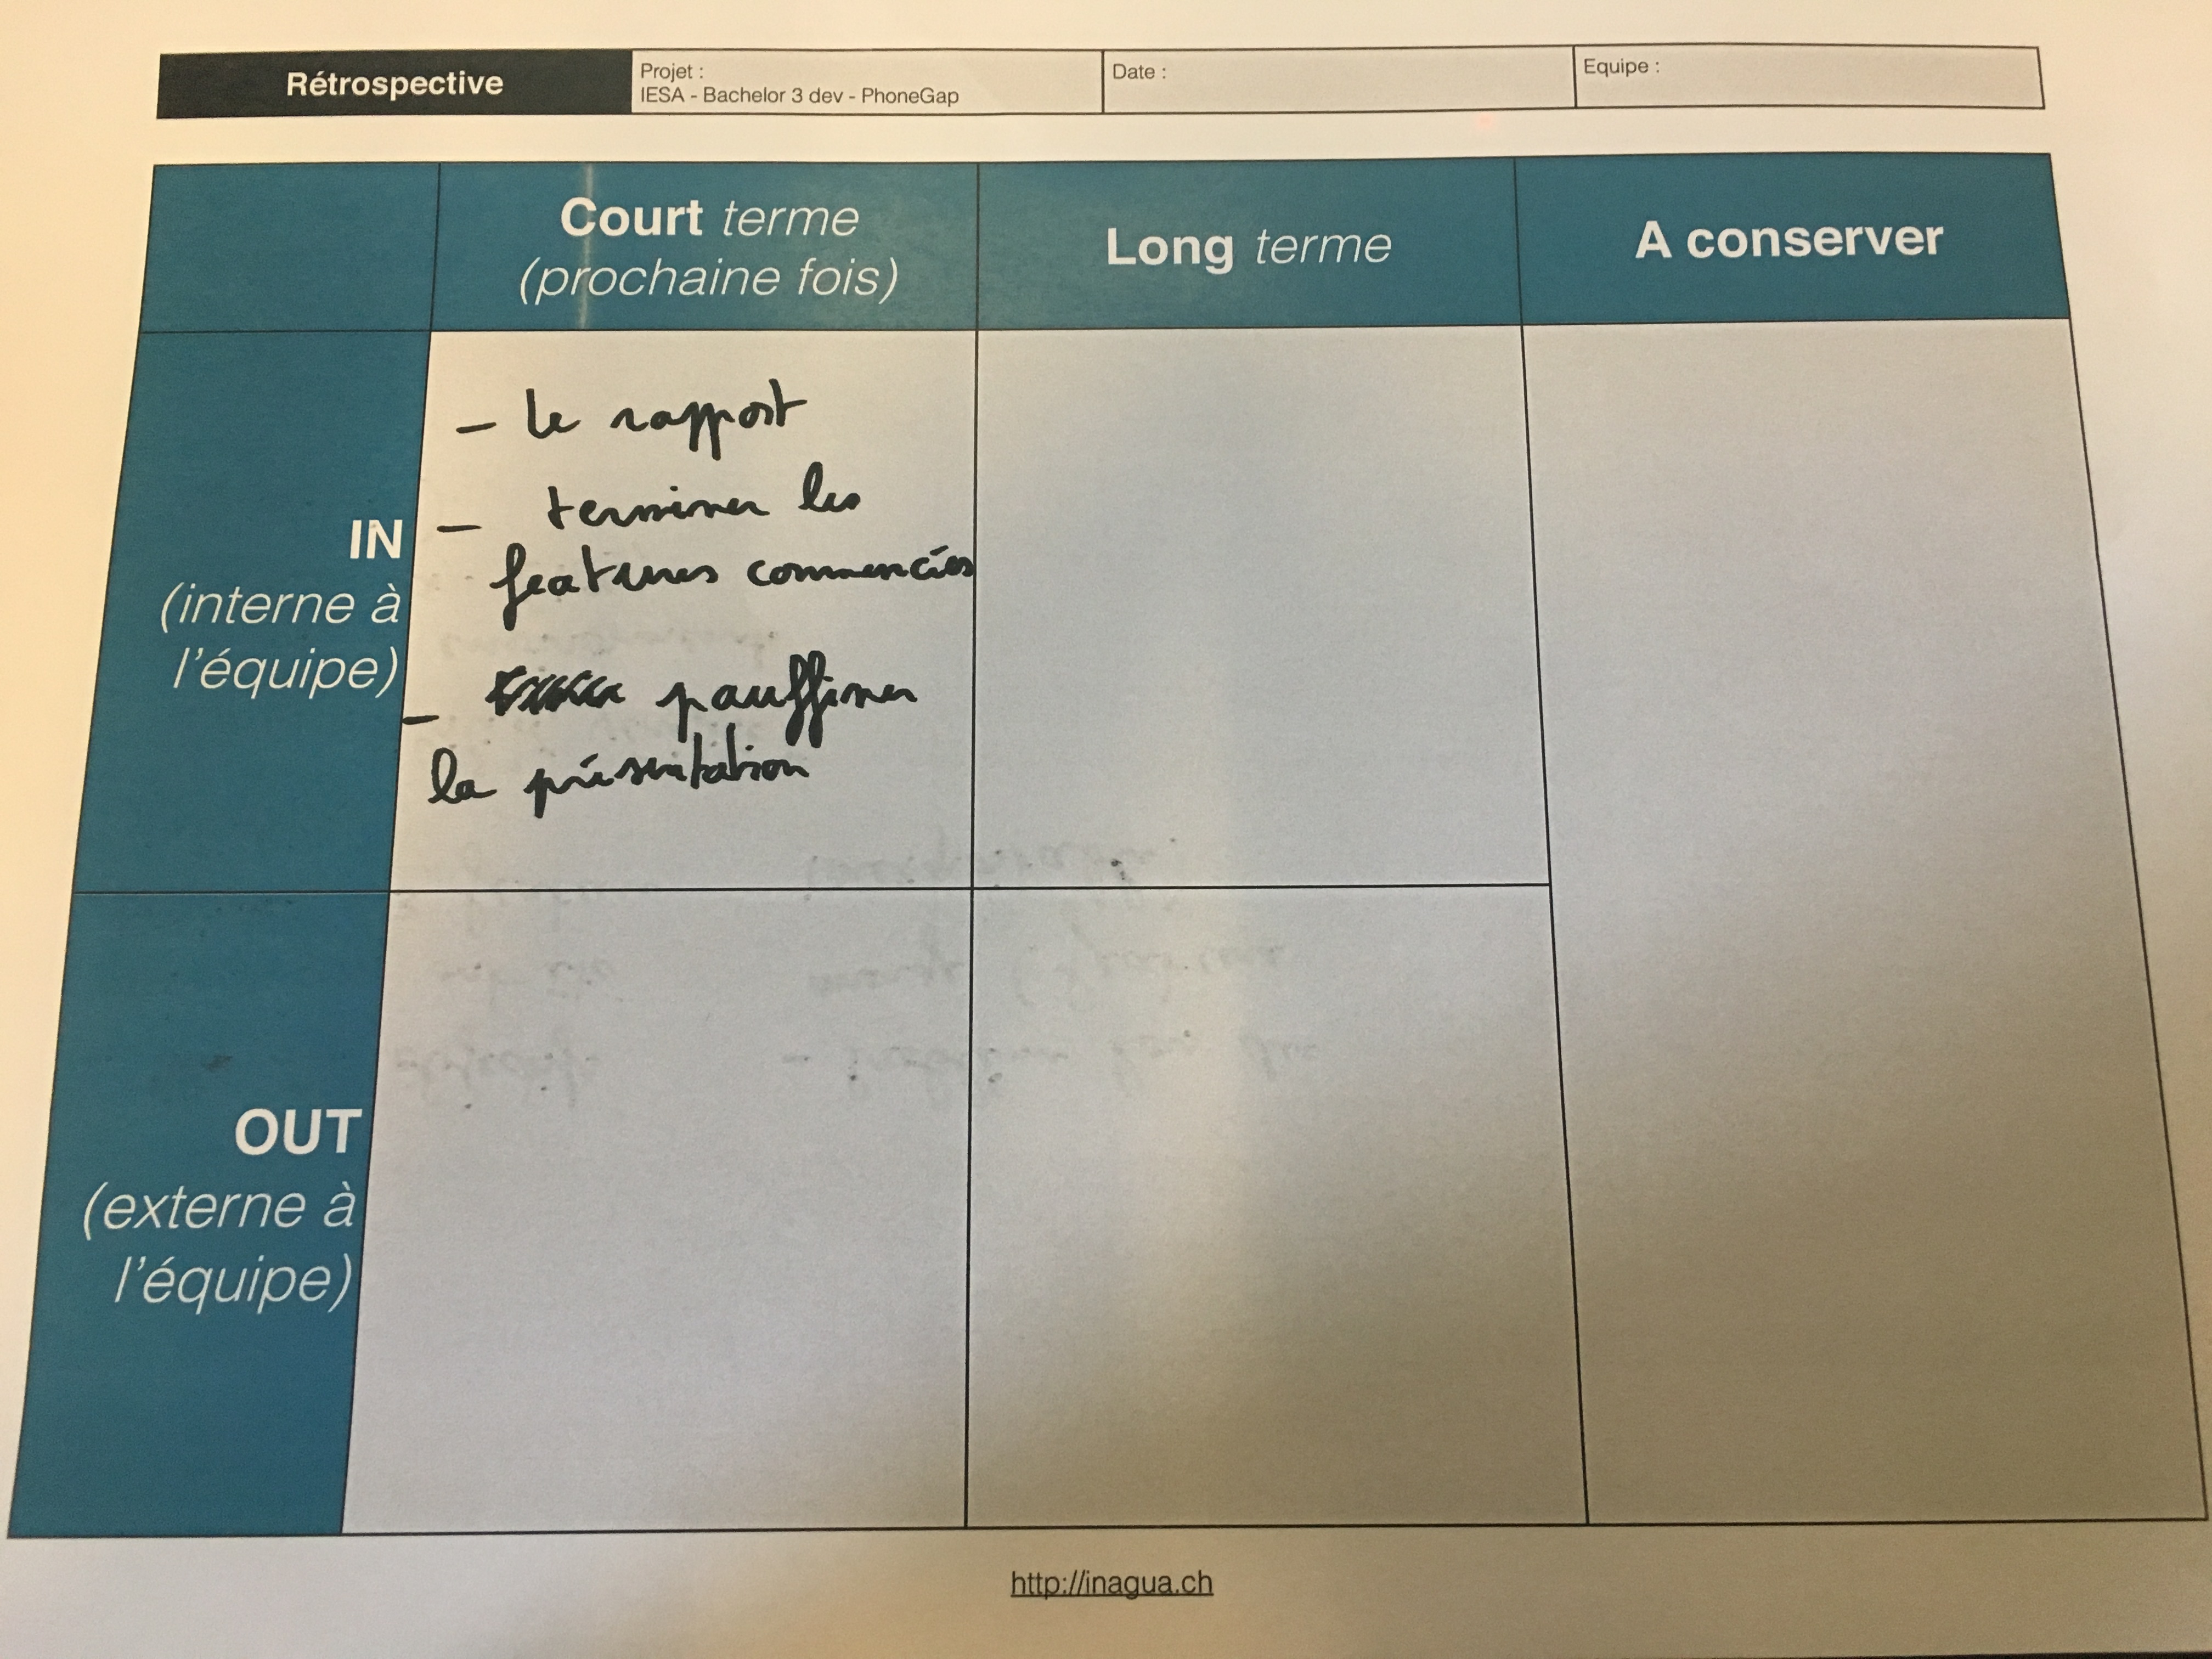 Rétrospective
Projet :
IESA - Bachelor 3 dev - PhoneGap
Date :
Equipe :
Court terme
(prochaine fois)
Long terme
A conserver
IN
(interne à
l'équipe)
- le rapport
- terminer les
features commencées
- pauffiner
la présentation
OUT
(externe à
l'équipe)
http://inagua.ch